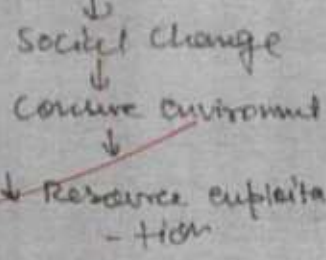 ↓
Social Change
↓
Concive environmt
↓
↓ Resource exploita
- tion